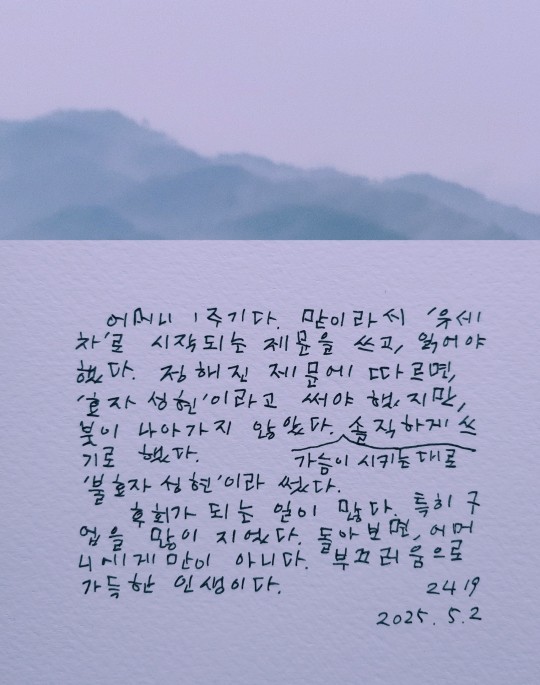 어머니 1주기다. 맏이라서 '유세
차'로 시작되는 제문을 쓰고, 읽어야
했다. 정해진 제문에 따르면,
'효자 성현'이라고 써야 했지만,
붓이 나아가지 않았다. 솔직하게 쓰
기로 했다. 가슴이 시키는대로
'불효자 성현'이라 썼다.
후회가 되는 일이 많다. 특히 구
업을 많이 지었다. 돌아보면, 어머
니에게만이 아니다. 부끄러움으로
가득한 인생이다. 2419
2025. 5. 2